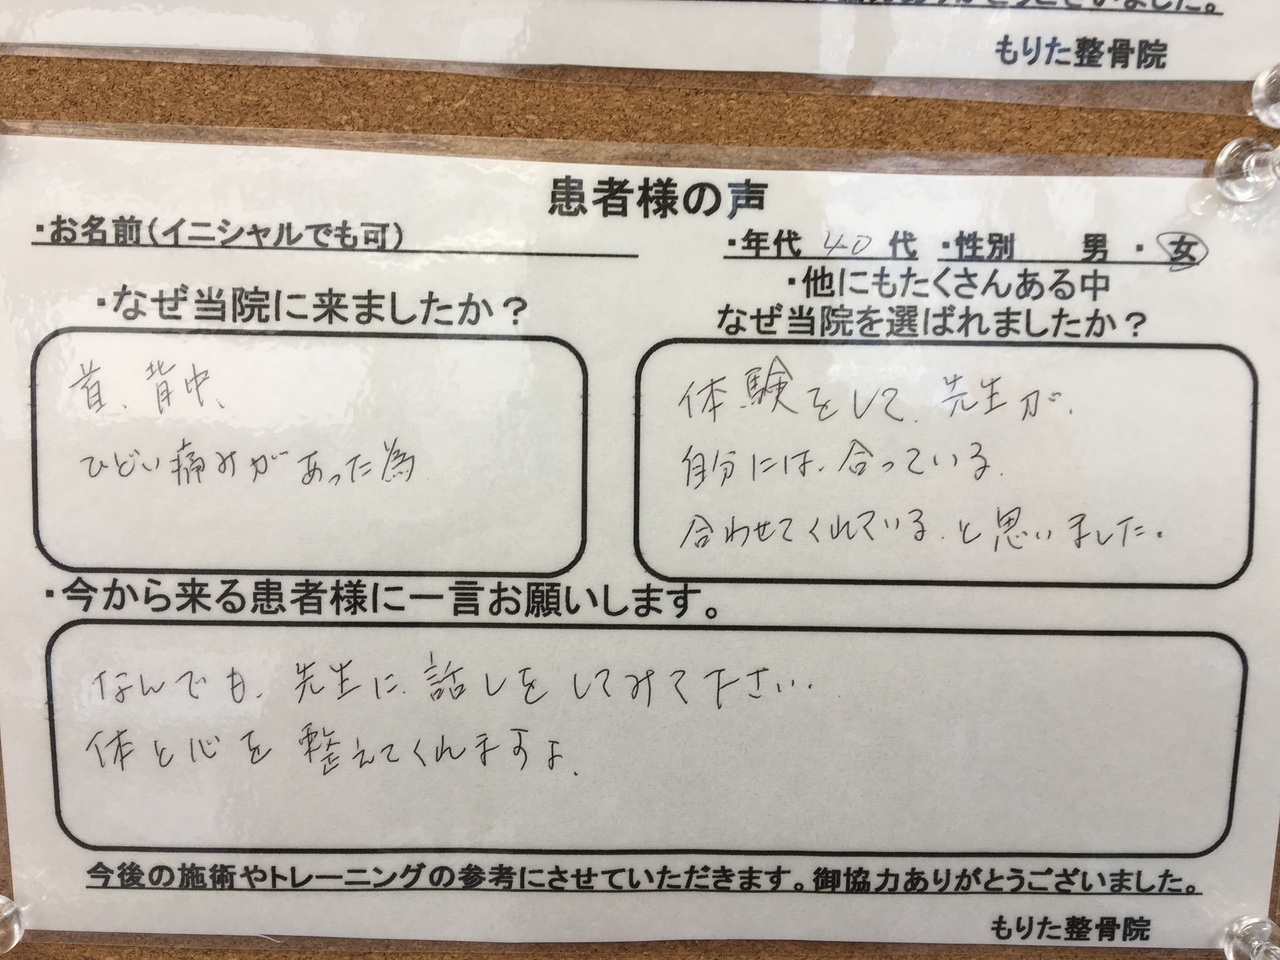 もりた整骨院
患者様の声
・お名前（イニシャルでも可）
・年代 40 代 ・性別 男 ・ 女
・なぜ当院に来ましたか？
・他にもたくさんある中
なぜ当院を選ばれましたか？
首、背中、
ひどい痛みがあった為
体験をして、先生が、
自分には、合っている。
合わせてくれている。と思いました。
・今から来る患者様に一言お願いします。
なんでも、先生に、話しをしてみて下さい。
体と心を整えてくれますよ。
今後の施術やトレーニングの参考にさせていただきます。御協力ありがとうございました。
もりた整骨院